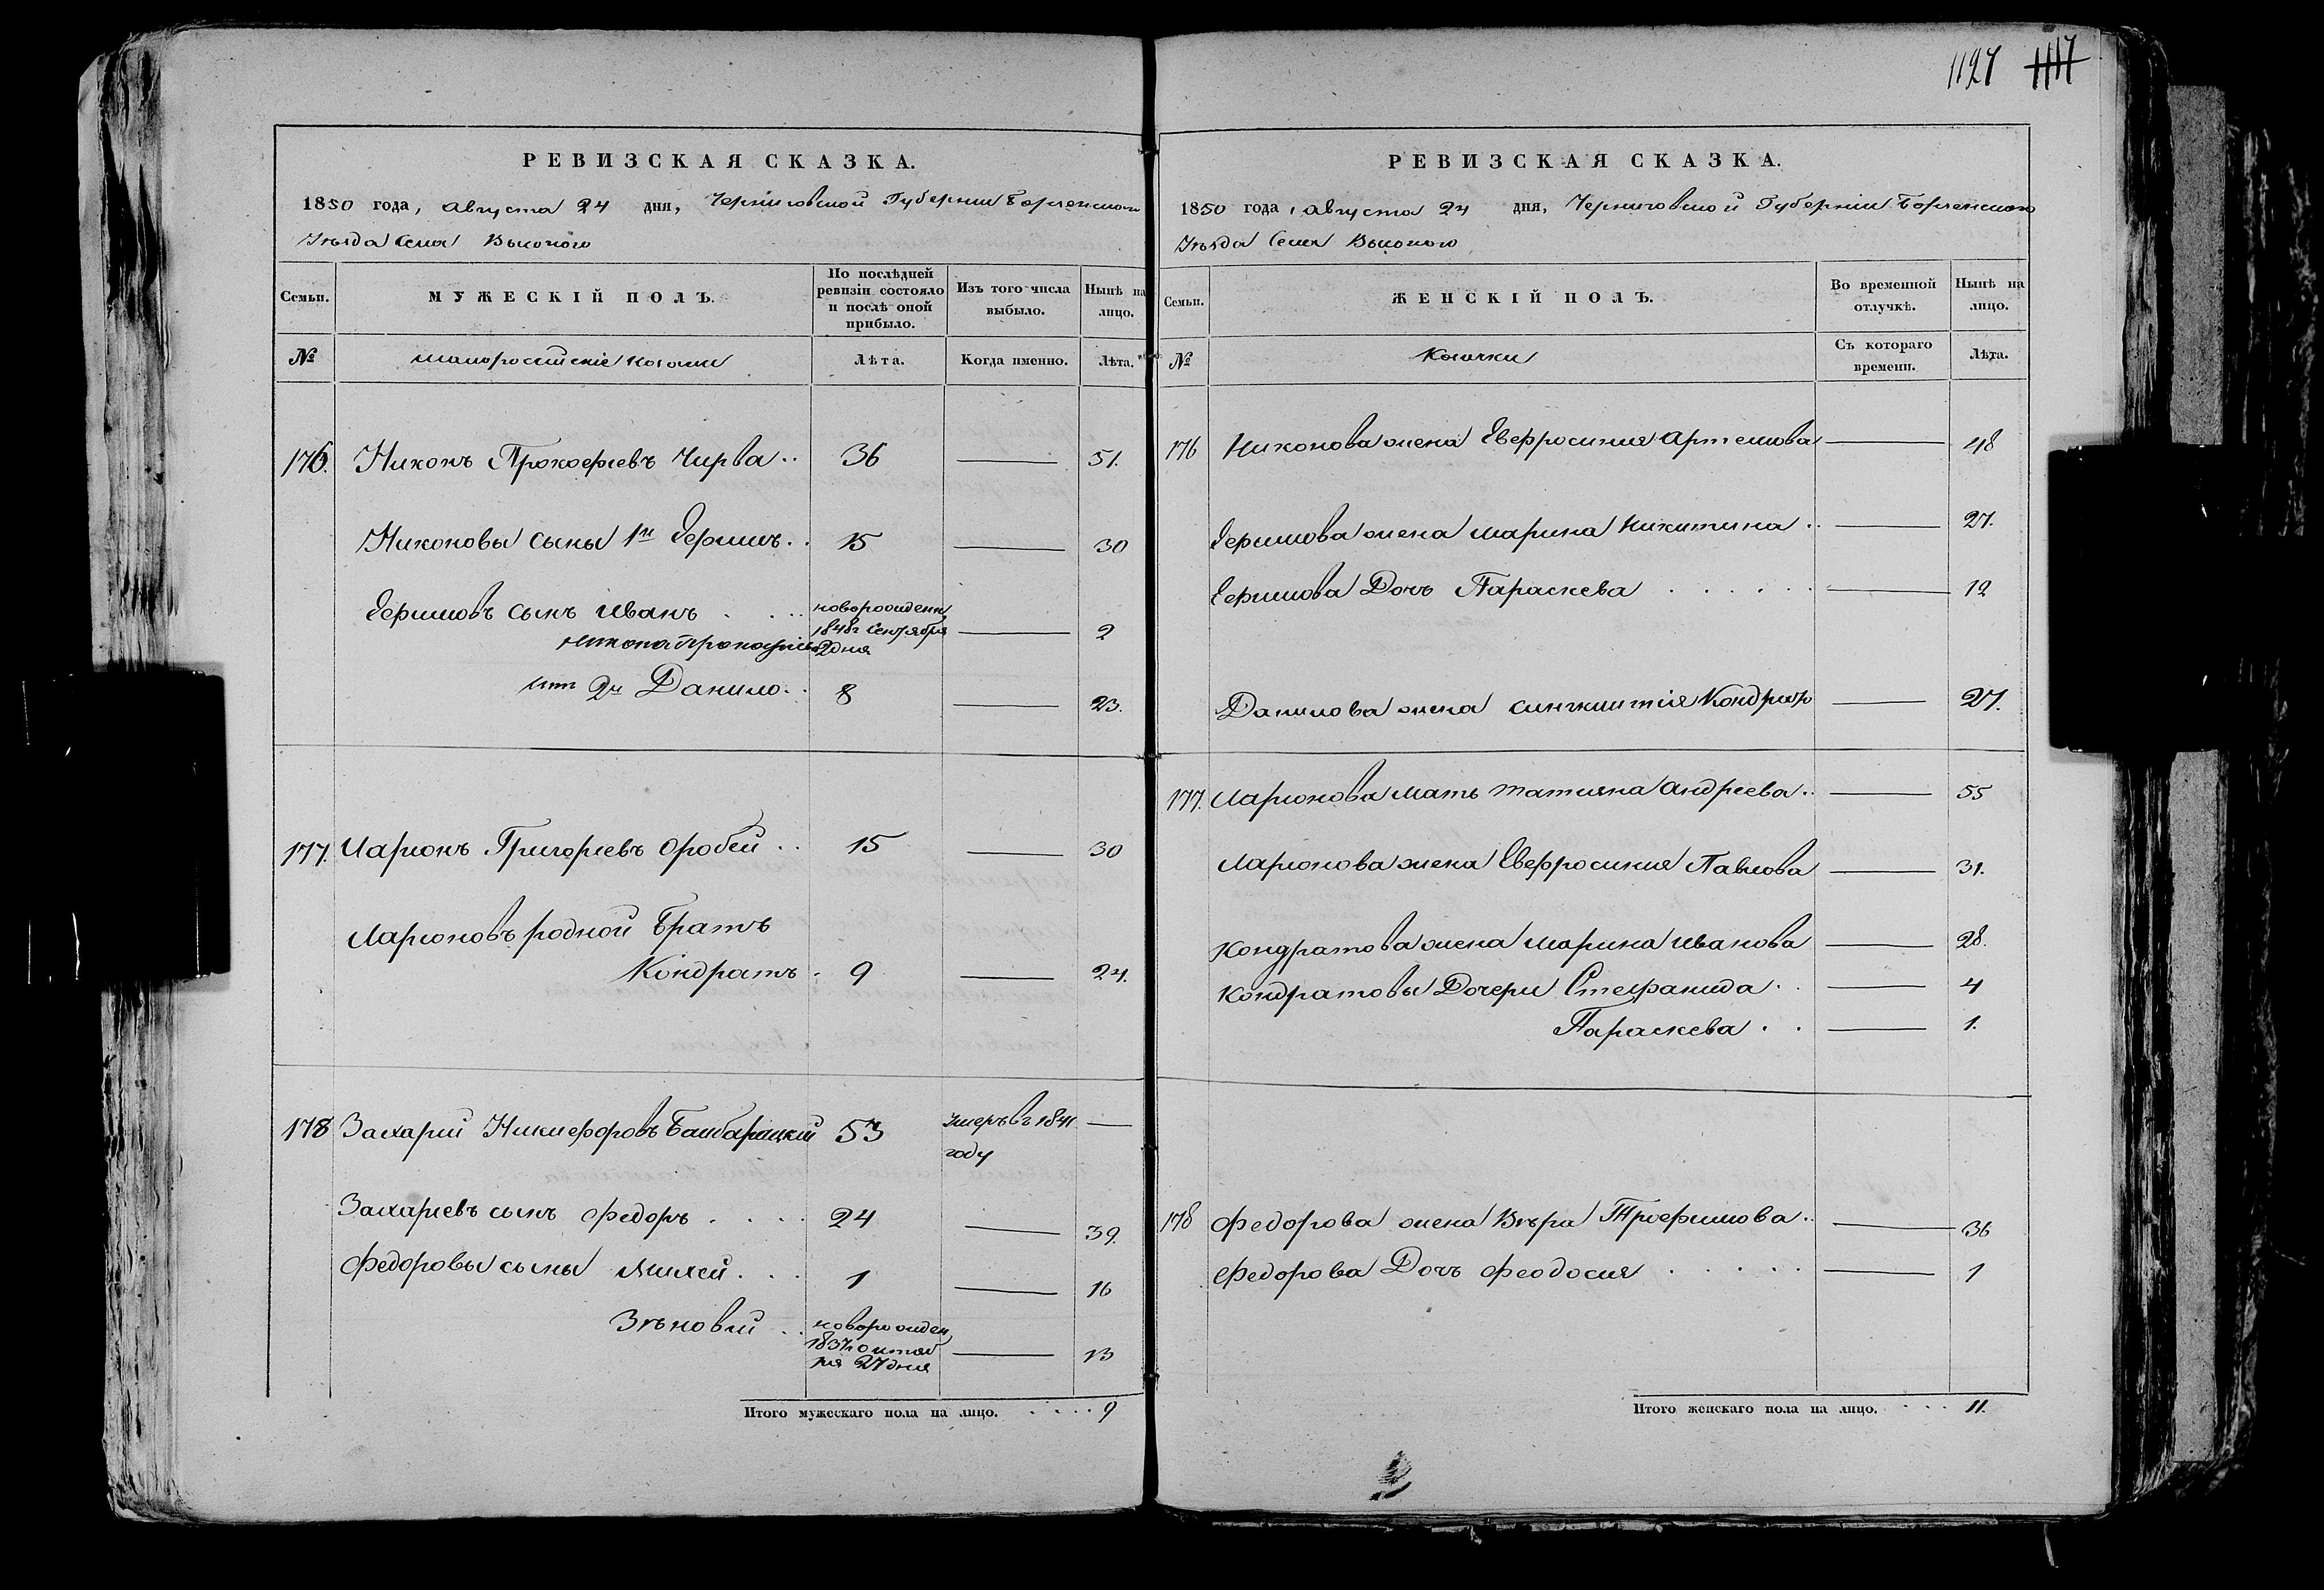 1127 1117
РЕВИЗСКАЯ СКАЗКА.
1850 года, августа 24 дня, Черниговской Губернии Борзенского
Уѣзда Села Высокого
Семьи. МУЖЕСКІЙ ПОЛЪ. По послѣдней ревизіи состояло и послѣ оной прибыло. Изъ того числа выбыло. Нынѣ на лицо.
№ малороссійскіе козаки Лѣта. Когда именно. Лѣта.
176. Никонъ Прокофіевъ Чирва 36 — 51.
Никоновы сыны 1й Ефимъ 15 — 30
Ефимовъ сынъ Иванъ новорожден 1848г Сентября 2 дня — 2
Никона Прокофіева
2й Данило 8 — 23.
177. Ларионъ Григоріевъ Оробей 15 — 30
Ларионовъ родной Братъ
Кондратъ 9 — 24.
178 Захарий Никифоровъ 53 Умеръ в 1841 году —
Захаріевъ сынъ Федоръ 24 — 39.
Федоровы сыны Михей 1 — 16
Зѣновий новорожден 1837г октября 27 дня — 13
Итого мужескаго пола на лицо. 9
РЕВИЗСКАЯ СКАЗКА.
1850 года, августа 24 дня, Черниговской Губернии Борзенского
Уѣзда Села Высокого
Семьи. ЖЕНСКІЙ ПОЛЪ. Во временной отлучкѣ. Нынѣ на лицо.
№ Козачки Съ котораго времени. Лѣта.
176 Никонова жена Евфросиния Артемова — 48
Ефимова жена Марина Никитина — 27.
Ефимова Дочь Параскева — 12
Данилова жена Синклитія Кондрат — 27.
177. Ларионова Мать Татияна Андреева — 55
Ларионова жена Евфросиния Павлова — 31.
Кондратова жена Марина Иванова — 28.
Кондратовы Дочери Стефанида — 4
Параскева — 1.
178 Федорова жена Вѣра Трофимова — 36
Федорова Дочь Феодосия — 1
Итого женскаго пола на лицо. 11.